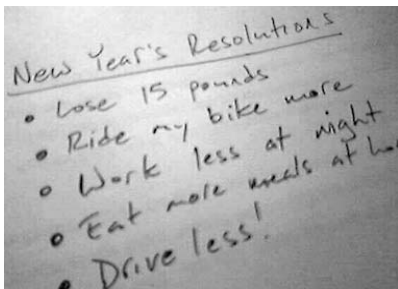 New Year's Resolutions
• Lose 15 pounds
• Ride my bike more
• Work less at night
• Eat more meals at ho
• Drive less!